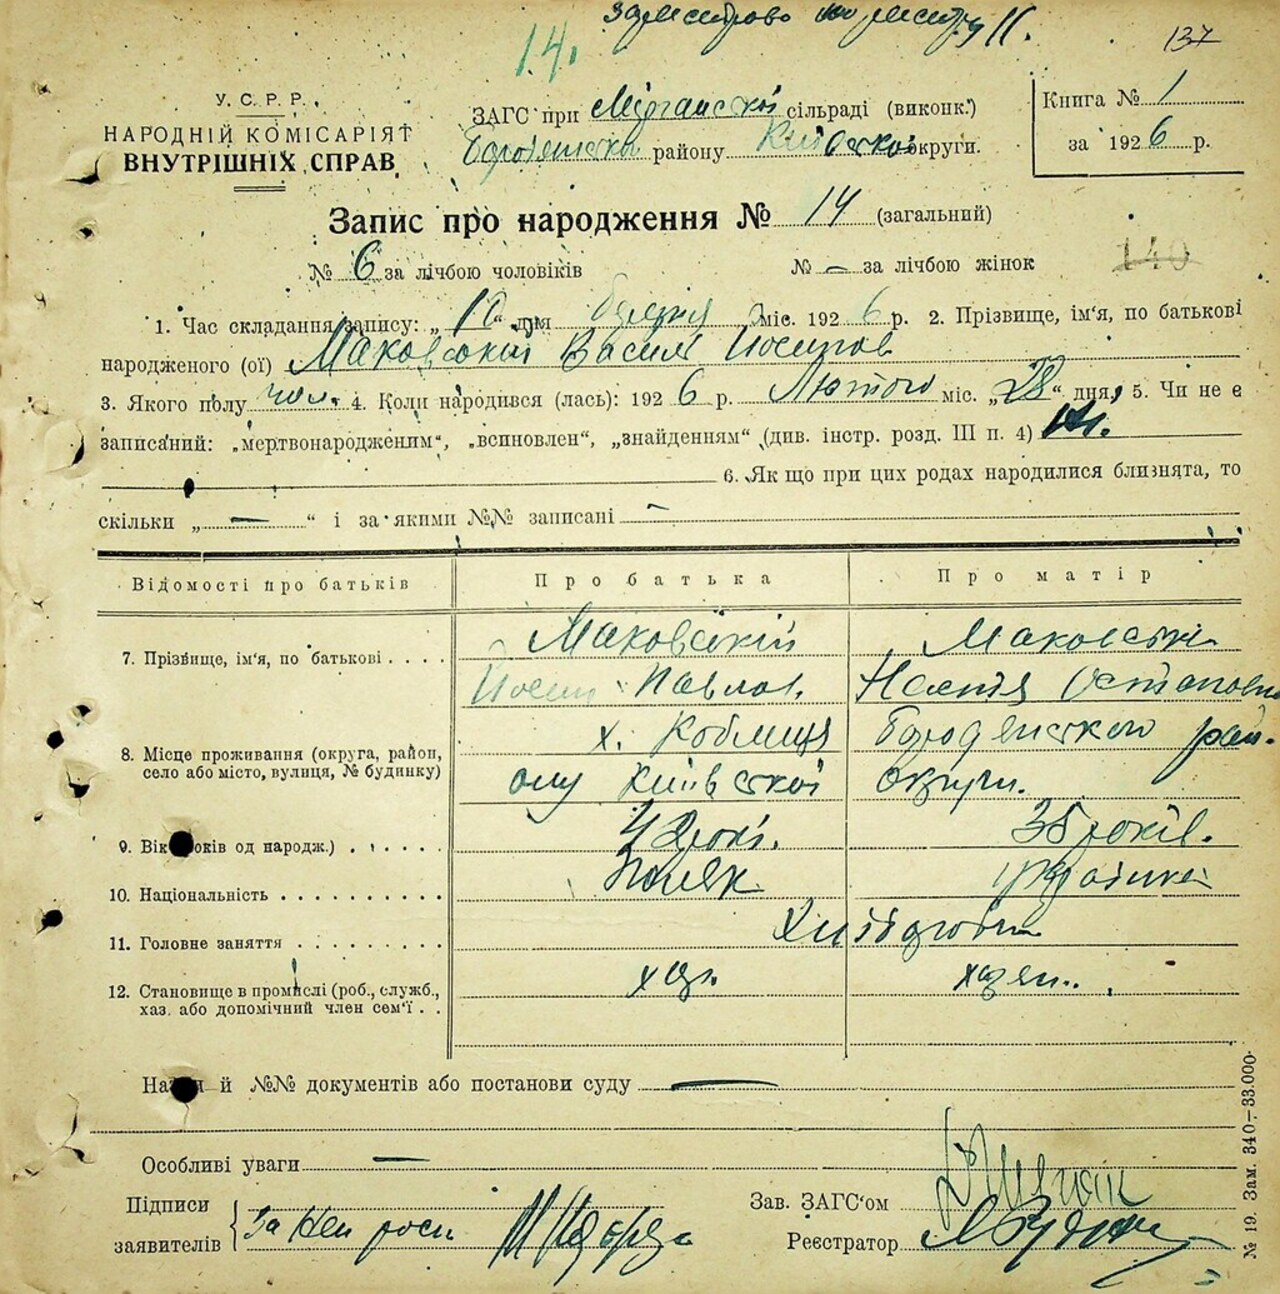 14.
137
У. С. Р. Р.
НАРОДНІЙ КОМІСАРІЯТ
ВНУТРІШНІХ СПРАВ
ЗАГС при сільраді (виконк.)
району Київської округи.
Книга № 1
за 1926 р.
Запис про народження № 14 (загальний)
№ 6 за лічбою чоловіків № — за лічбою жінок
140
1. Час складання запису: „ “ дня міс. 1926 р. 2. Прізвище, ім'я, по батькові
народженого (ої) Маковський Василь Иосипов
3. Якого полу чол. 4. Коли народився (лась): 1926 р. Лютого міс. „28“ дня, 5. Чи не є
записаний: „мертвонародженим“, „всиновлен“, „знайденням“ (див. інстр. розд. III п. 4)
6. Як що при цих родах народилися близнята, то
скільки „ — “ і за якими №№ записані —
Відомості про батьків Про батька Про матір
7. Прізвище, ім'я, по батькові . . . . Маковській Маковська
Иосип Павлов. Настя Остаповна
8. Місце проживання (округа, район, село або місто, вулиця, № будинку) х. Коблиця Бородянского рай-
ону Київської округи.
9. Вік років од народж.) . . . . . 42 рокі. 35 років.
10. Національність . . . . . . . . . . Поляк українка
11. Головне заняття . . . . . . . . Хліборобн
12. Становище в промислі (роб., служб.,
хаз. або допомічний член сем'ї . . хаз. хазяй.
й №№ документів або постанови суду —
Особливі уваги —
Підписи
заявителів За
Зав. ЗАГС'ом
Реєстратор
№ 19. Зам. 340.—33.000.